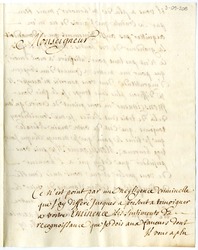 Monseigneur
Ce n'est point par une negligence criminelle
que j'ay differé jusques a present a temoigner
a votre Eminence les sentimens de
recognoissance que je dois aux faveurs dont
il vous a plu